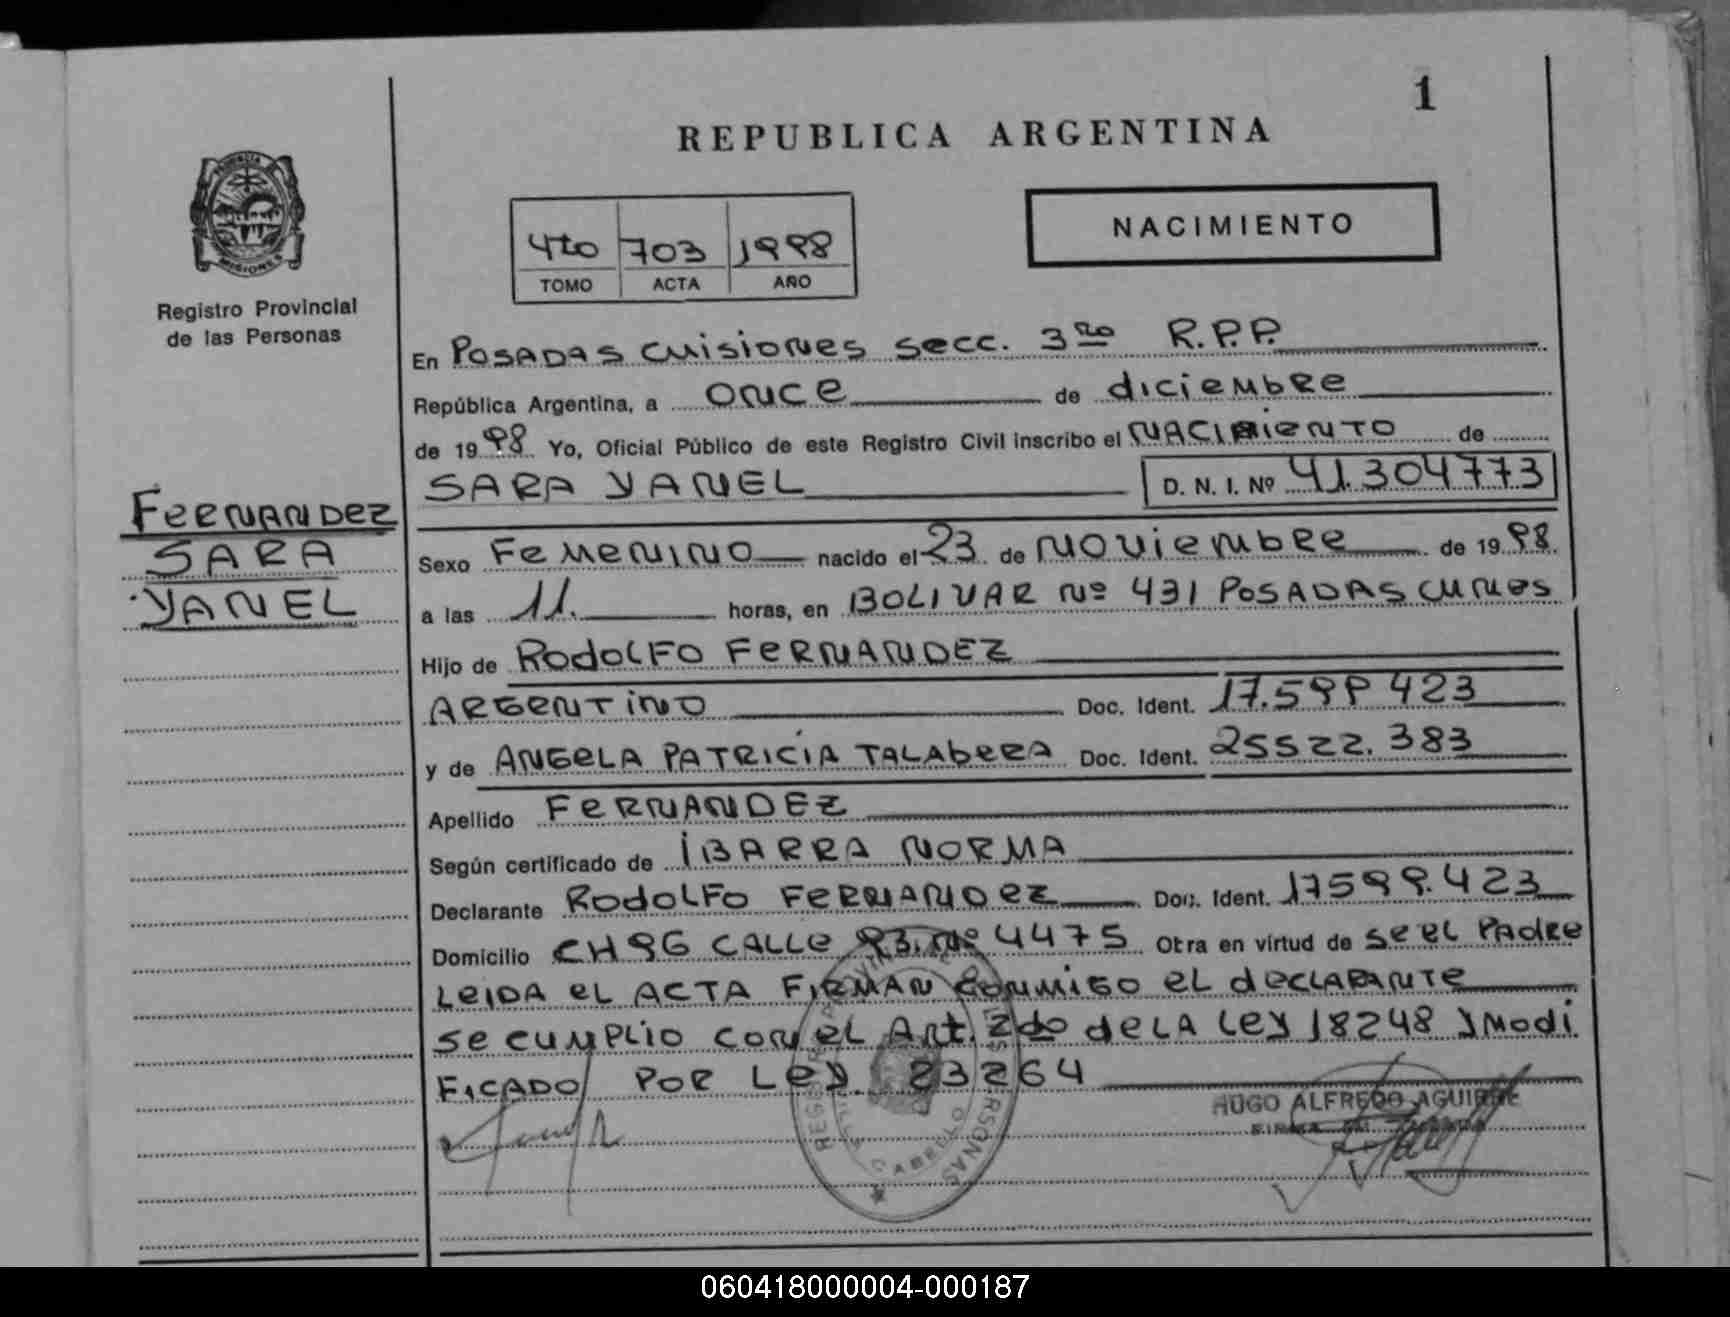 1
REPUBLICA ARGENTINA
PROVINCIA DE
MISIONES
Registro Provincial
de las Personas
4to 703 1998
TOMO ACTA AÑO
NACIMIENTO
En POSADAS Misiones secc. 3ra R.P.P.
República Argentina, a once de diciembre
de 1998 Yo, Oficial Público de este Registro Civil inscribo el NACIMIENTO de
SARA YANEL D. N. I. Nº 41.304773
FERNANDEZ
SARA
YANEL
Sexo Femenino nacido el 23 de noviembre de 1998
a las 11. horas, en BOLIVAR Nº 431 POSADAS Mnes
Hijo de RODOLFO FERNANDEZ
ARGENTINO Doc. Ident. 17.599 423
y de ANGELA PATRICIA TALABERA Doc. Ident. 25522.383
Apellido FERNANDEZ
Según certificado de IBARRA NORMA
Declarante RODOLFO FERNANDEZ Doc. Ident. 17599.423
Domicilio CH 96 CALLE 93 Nº 4475 Otra en virtud de se el PADRE
LEIDA el ACTA FIRMAN conmigo el declarante
se cumplio con el Art. 2do de LA Ley 18248 y Modi
FICADO POR Ley 23264
HUGO ALFREDO AGUIRRE
060418000004-000187